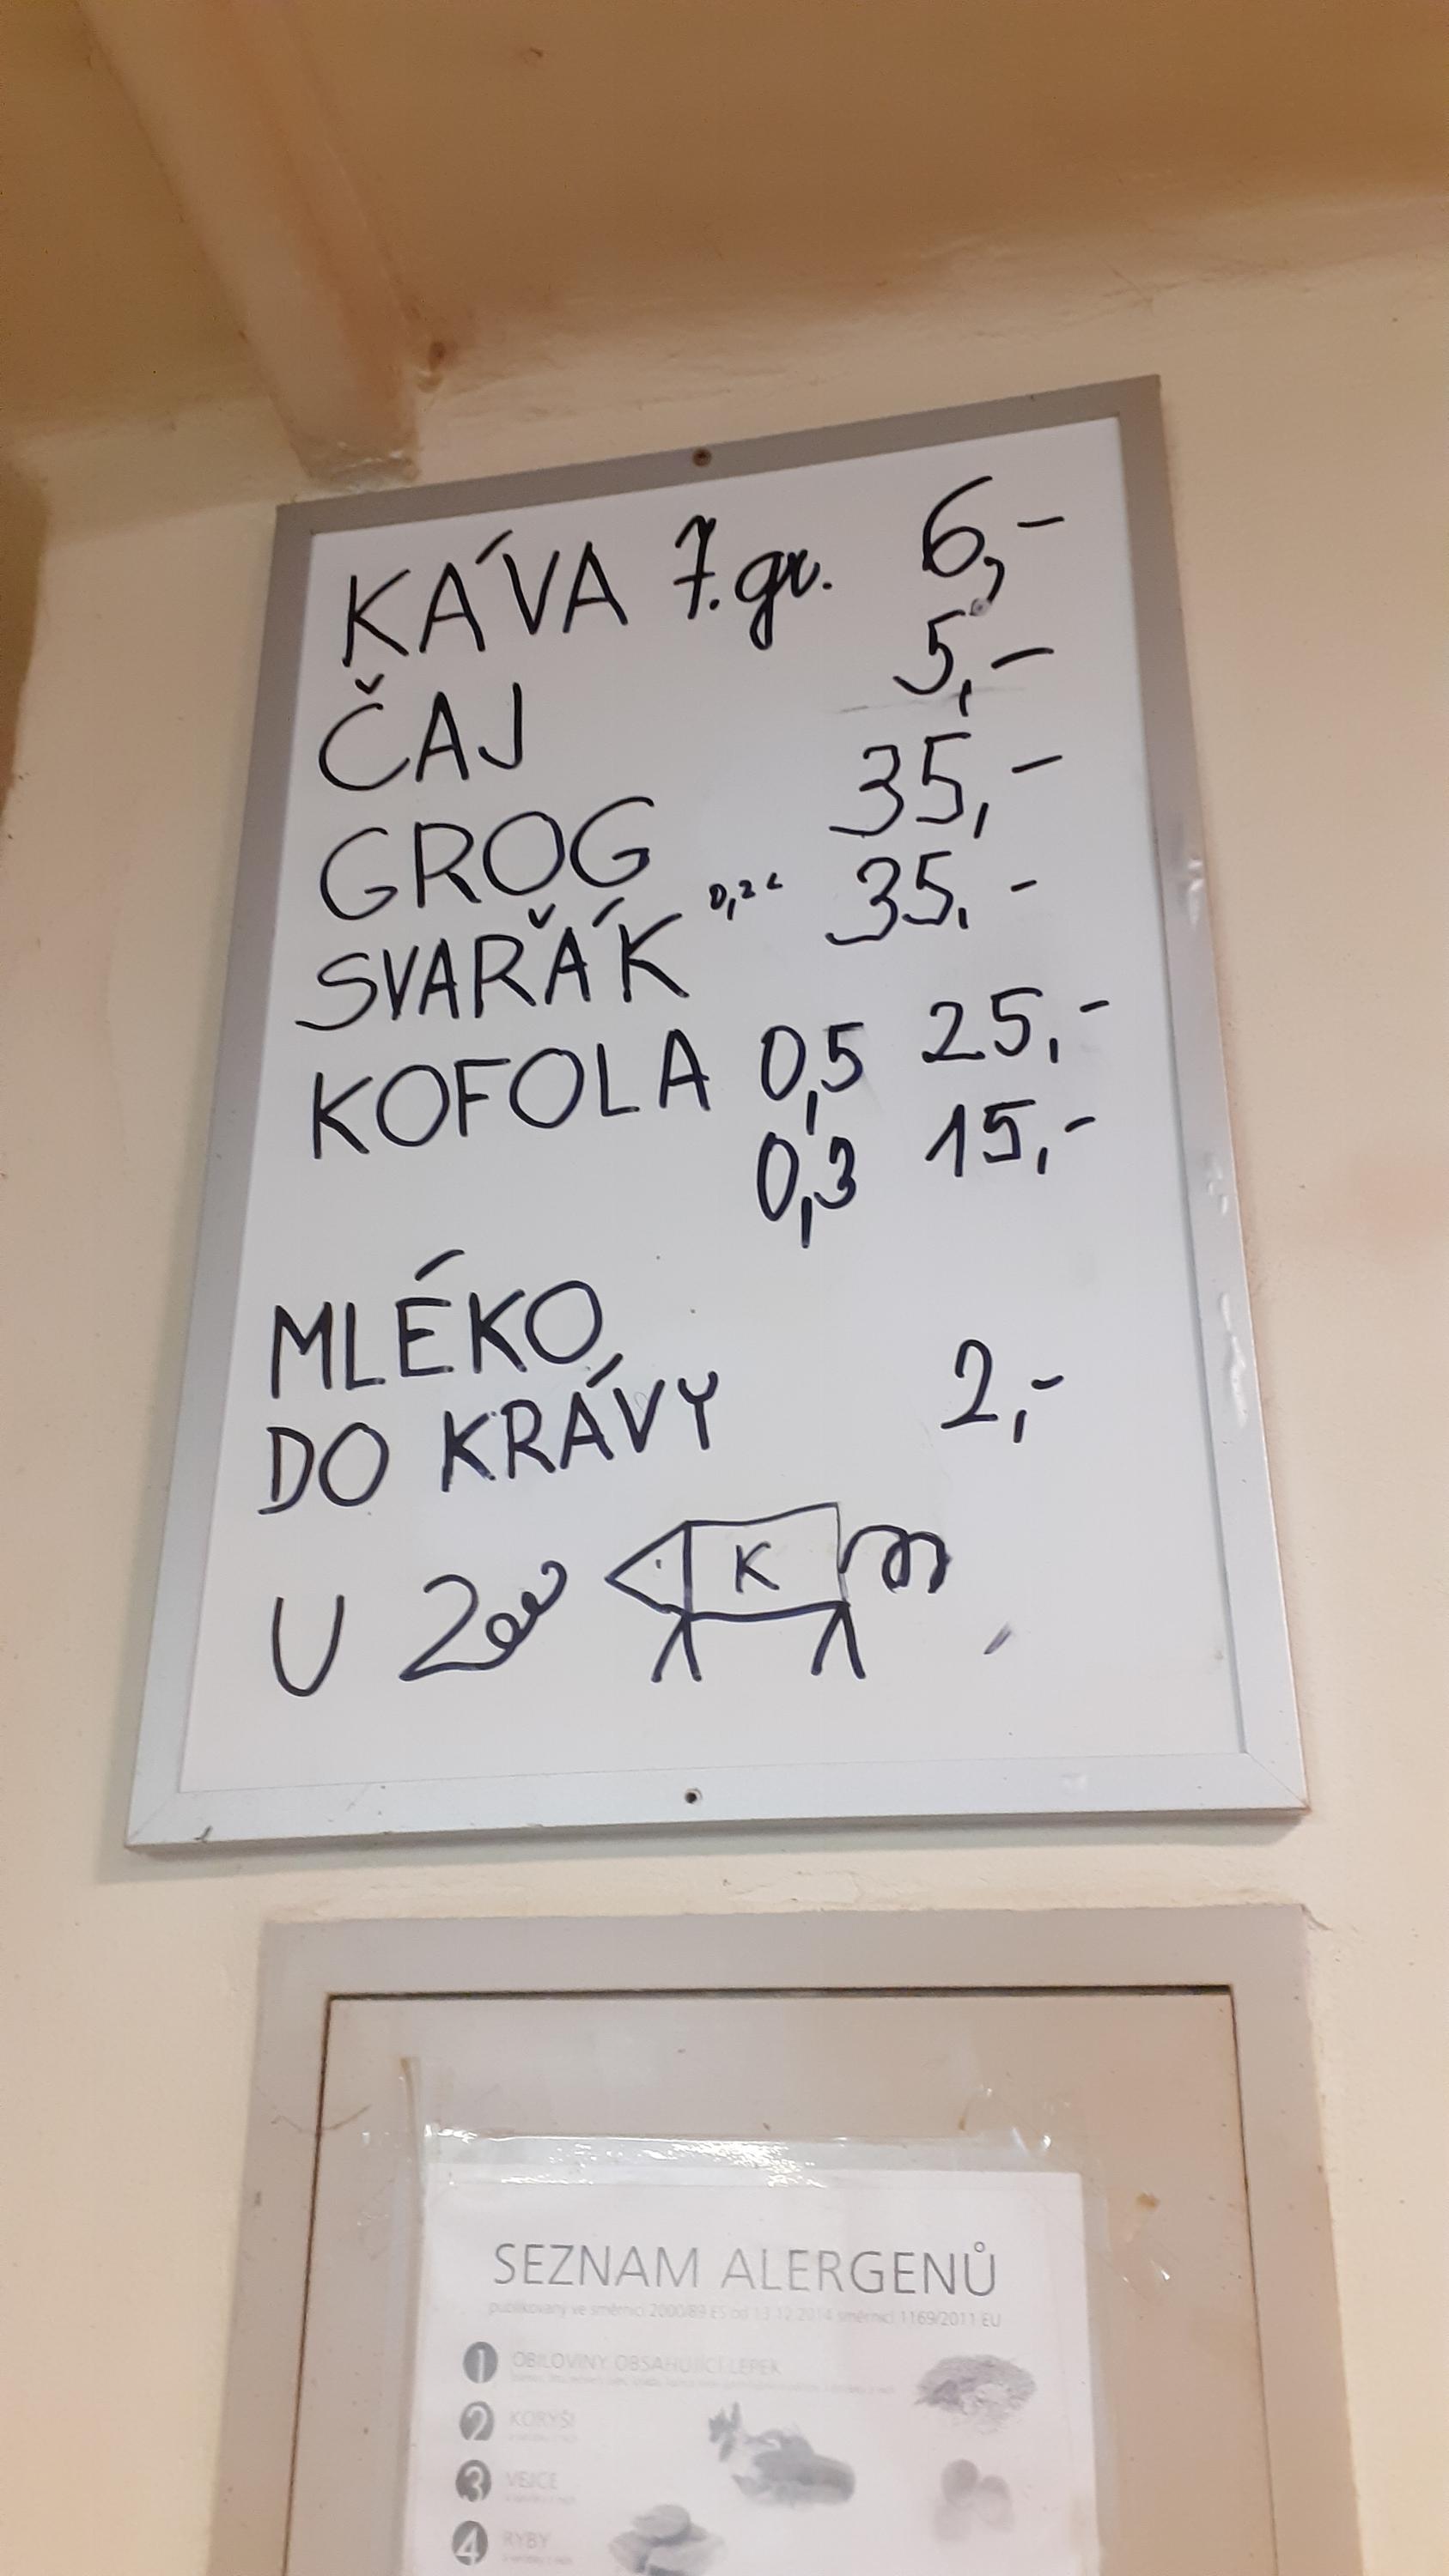 KÁVA 7.gr. 6,-
ČAJ 5,-
GROG 35,-
SVAŘÁK 0,2L 35,-
KOFOLA 0,5 25,-
0,3 15,-
MLÉKO
DO KRÁVY 2,-
U
K
SEZNAM ALERGENŮ
publikovaný ve směrnici 2000/89 ES od 13.12.2014 směrnicí 1169/2011 EU
1 OBILOVINY OBSAHUJÍCÍ LEPEK
2 KORÝŠI
3 VEJCE
4 RYBY